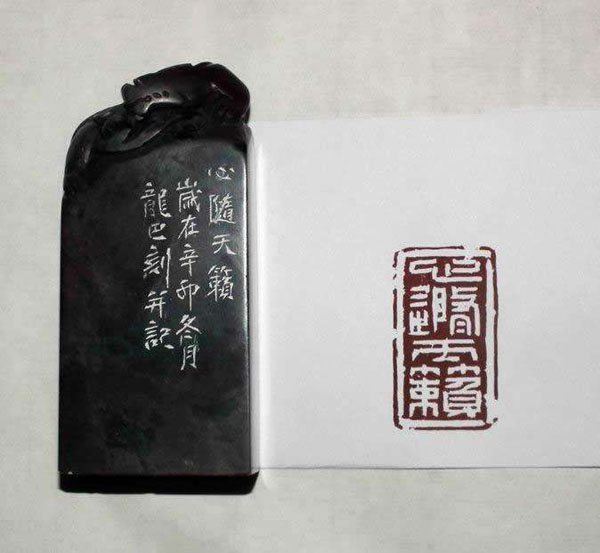 心隨天籟
歲在辛卯冬月
龍巴刻并記
心隨天籟